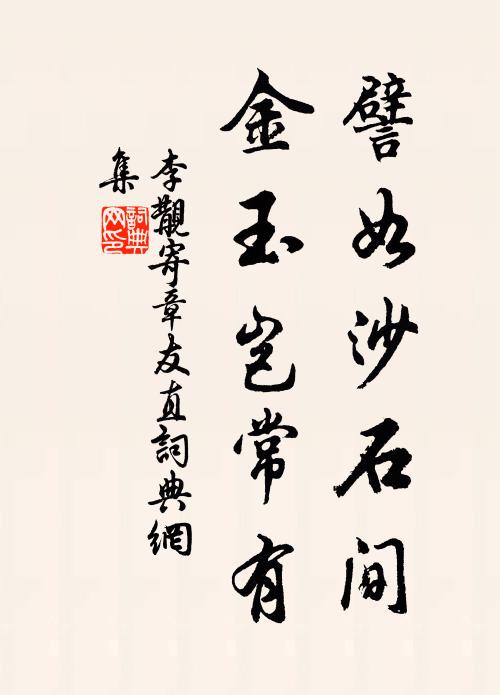 譬如沙石间
金玉岂常有
李觀寄章友直詞典網
集
詞典網印